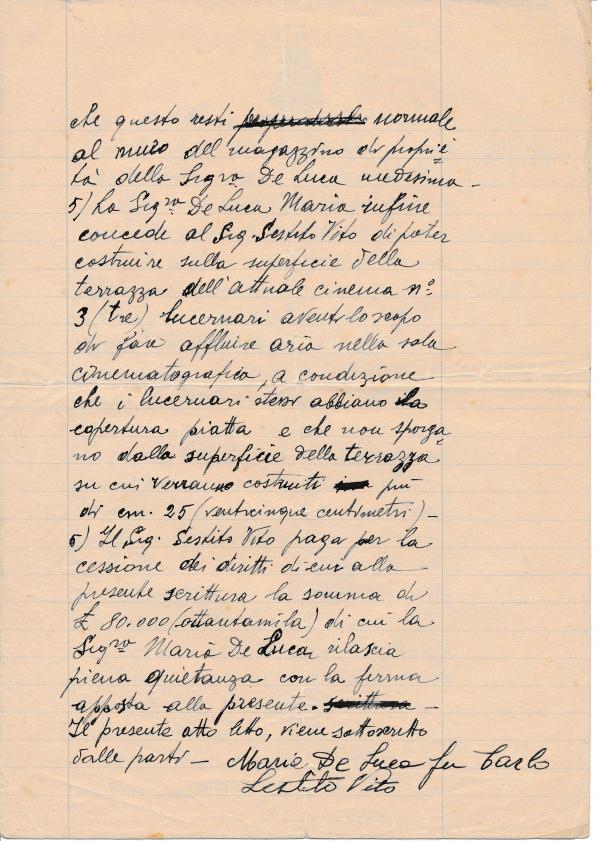 che questo resti normale
al muro del magazzino di proprie=
tà della Sigra De Luca medesima_
5) La Sigra De Luca Maria infine
concede al Sig. Sestito Vito di poter
costruire sulla superficie della
terrazza dell'attuale cinema no.
3 (tre) lucernari aventi lo scopo
di fare affluire aria nella sala
cinematografica, a condizione
che i lucernari stessi abbiano la
copertura piatta e che non sporga=
no dalla superficie della terrazza
su cui verranno costruiti più
di cm. 25 (venticinque centimetri)_
6) Il Sig. Sestito Vito paga per la
cessione dei diritti di cui alla
presente scrittura la somma di
£ 80.000 (ottantamila) di cui la
Sigra Maria De Luca rilascia
piena quietanza con la firma
apposta alla presente. scrittura _
Il presente atto letto, viene sottoscritto
dalle parti _ Maria De Luca fu Carlo
Sestito Vito